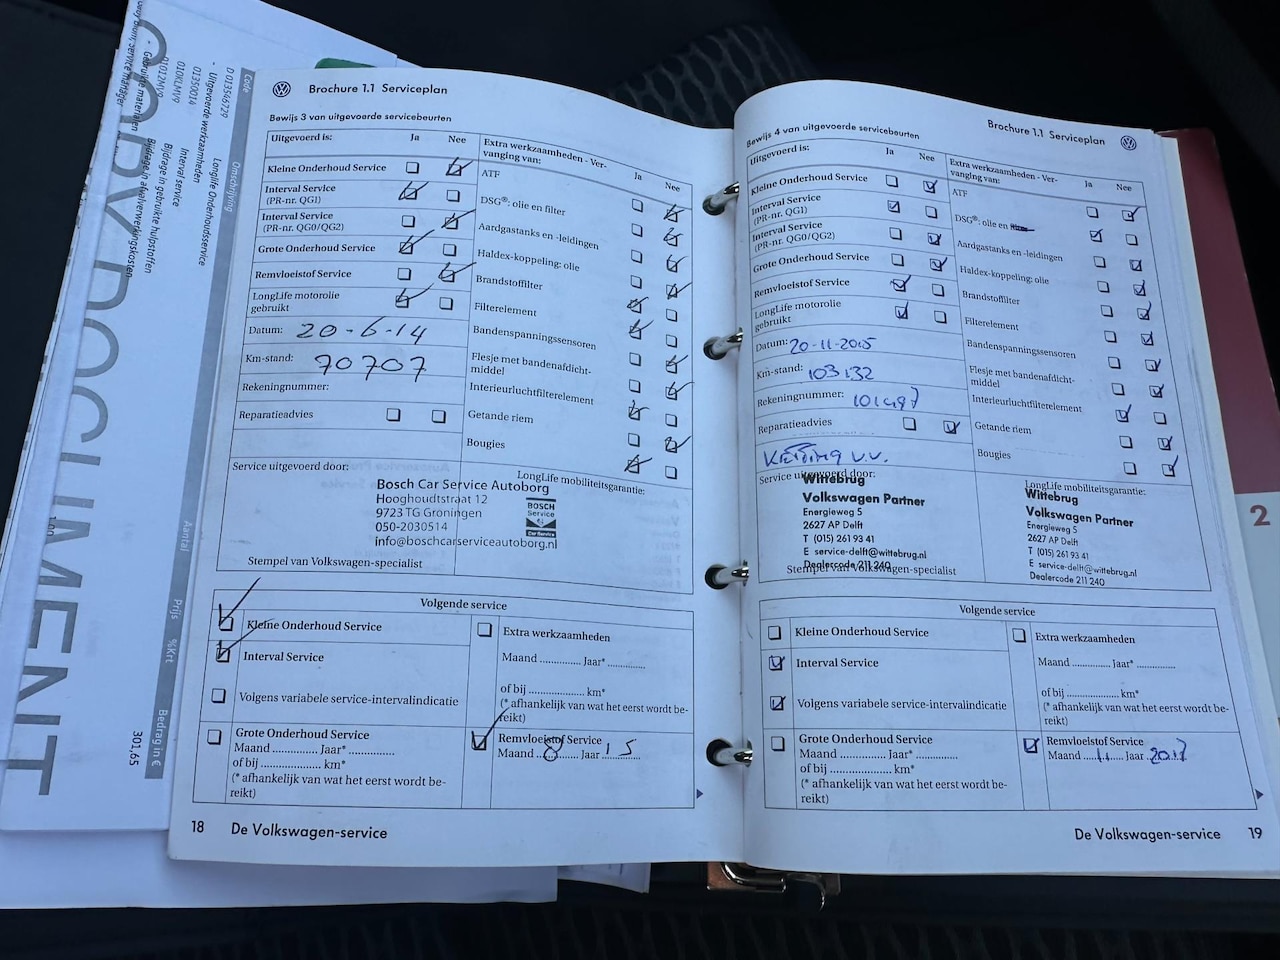 Code
Omschrijving
D 01354S729
Longlife Onderhoudsservice
- Uitgevoerde werkzaamheden
01350014
Interval service
010KLMV9
Bijdrage in gebruikte hulpstoffen
01012MV9
Bijdrage in afvalverwerkingskosten
- Gebruikte materialen
COPY DOCUMENT
Aantal
Prijs
%Krt
Bedrag in €
1,00
301,65
Brochure 1.1 Serviceplan
Bewijs 3 van uitgevoerde servicebeurten
Uitgevoerd is:
Ja
Nee
Kleine Onderhoud Service
Interval Service
(PR-nr. QG1)
Interval Service
(PR-nr. QG0/QG2)
Grote Onderhoud Service
Remvloeistof Service
LongLife motorolie
gebruikt
Datum: 20-6-14
Km-stand: 70707
Rekeningnummer:
Reparatieadvies
Extra werkzaamheden - Ver-
vanging van:
Ja
Nee
ATF
DSG®: olie en filter
Aardgastanks en -leidingen
Haldex-koppeling: olie
Brandstoffilter
Filterelement
Bandenspanningssensoren
Flesje met bandenafdicht-
middel
Interieurluchtfilterelement
Getande riem
Bougies
Service uitgevoerd door:
LongLife mobiliteitsgarantie:
Bosch Car Service Autoborg
Hooghoudtstraat 12
9723 TG Groningen
050-2030514
info@boschcarserviceautoborg.nl
BOSCH
Service
Car Service
Stempel van Volkswagen-specialist
Volgende service
Kleine Onderhoud Service
Interval Service
Volgens variabele service-intervalindicatie
Grote Onderhoud Service
Maand .............. Jaar* ..............
of bij .................... km*
(* afhankelijk van wat het eerst wordt be-
reikt)
Extra werkzaamheden
Maand ............ Jaar* .............
of bij .................. km*
(* afhankelijk van wat het eerst wordt be-
reikt)
Remvloeistof Service
Maand 8 Jaar 15
18 De Volkswagen-service
Brochure 1.1 Serviceplan
Bewijs 4 van uitgevoerde servicebeurten
Uitgevoerd is:
Ja
Nee
Kleine Onderhoud Service
Interval Service
(PR-nr. QG1)
Interval Service
(PR-nr. QG0/QG2)
Grote Onderhoud Service
Remvloeistof Service
LongLife motorolie
gebruikt
Datum: 20-11-2015
Km-stand: 103132
Rekeningnummer:
Reparatieadvies
Extra werkzaamheden - Ver-
vanging van:
Ja
Nee
ATF
DSG®: olie en
Aardgastanks en -leidingen
Haldex-koppeling: olie
Brandstoffilter
Filterelement
Bandenspanningssensoren
Flesje met bandenafdicht-
middel
Interieurluchtfilterelement
Getande riem
Bougies
Service uitgevoerd door:
LongLife mobiliteitsgarantie:
Wittebrug
Volkswagen Partner
Energieweg 5
2627 AP Delft
T (015) 261 93 41
E service-delft@wittebrug.nl
Dealercode 211 240
Wittebrug
Volkswagen Partner
Energieweg 5
2627 AP Delft
T (015) 261 93 41
E service-delft@wittebrug.nl
Dealercode 211 240
Stempel van Volkswagen-specialist
Volgende service
Kleine Onderhoud Service
Interval Service
Volgens variabele service-intervalindicatie
Grote Onderhoud Service
Maand .............. Jaar* ..............
of bij .................... km*
(* afhankelijk van wat het eerst wordt be-
reikt)
Extra werkzaamheden
Maand ............ Jaar* .............
of bij .................. km*
(* afhankelijk van wat het eerst wordt be-
reikt)
Remvloeistof Service
Maand 11 Jaar 2017
De Volkswagen-service 19
2